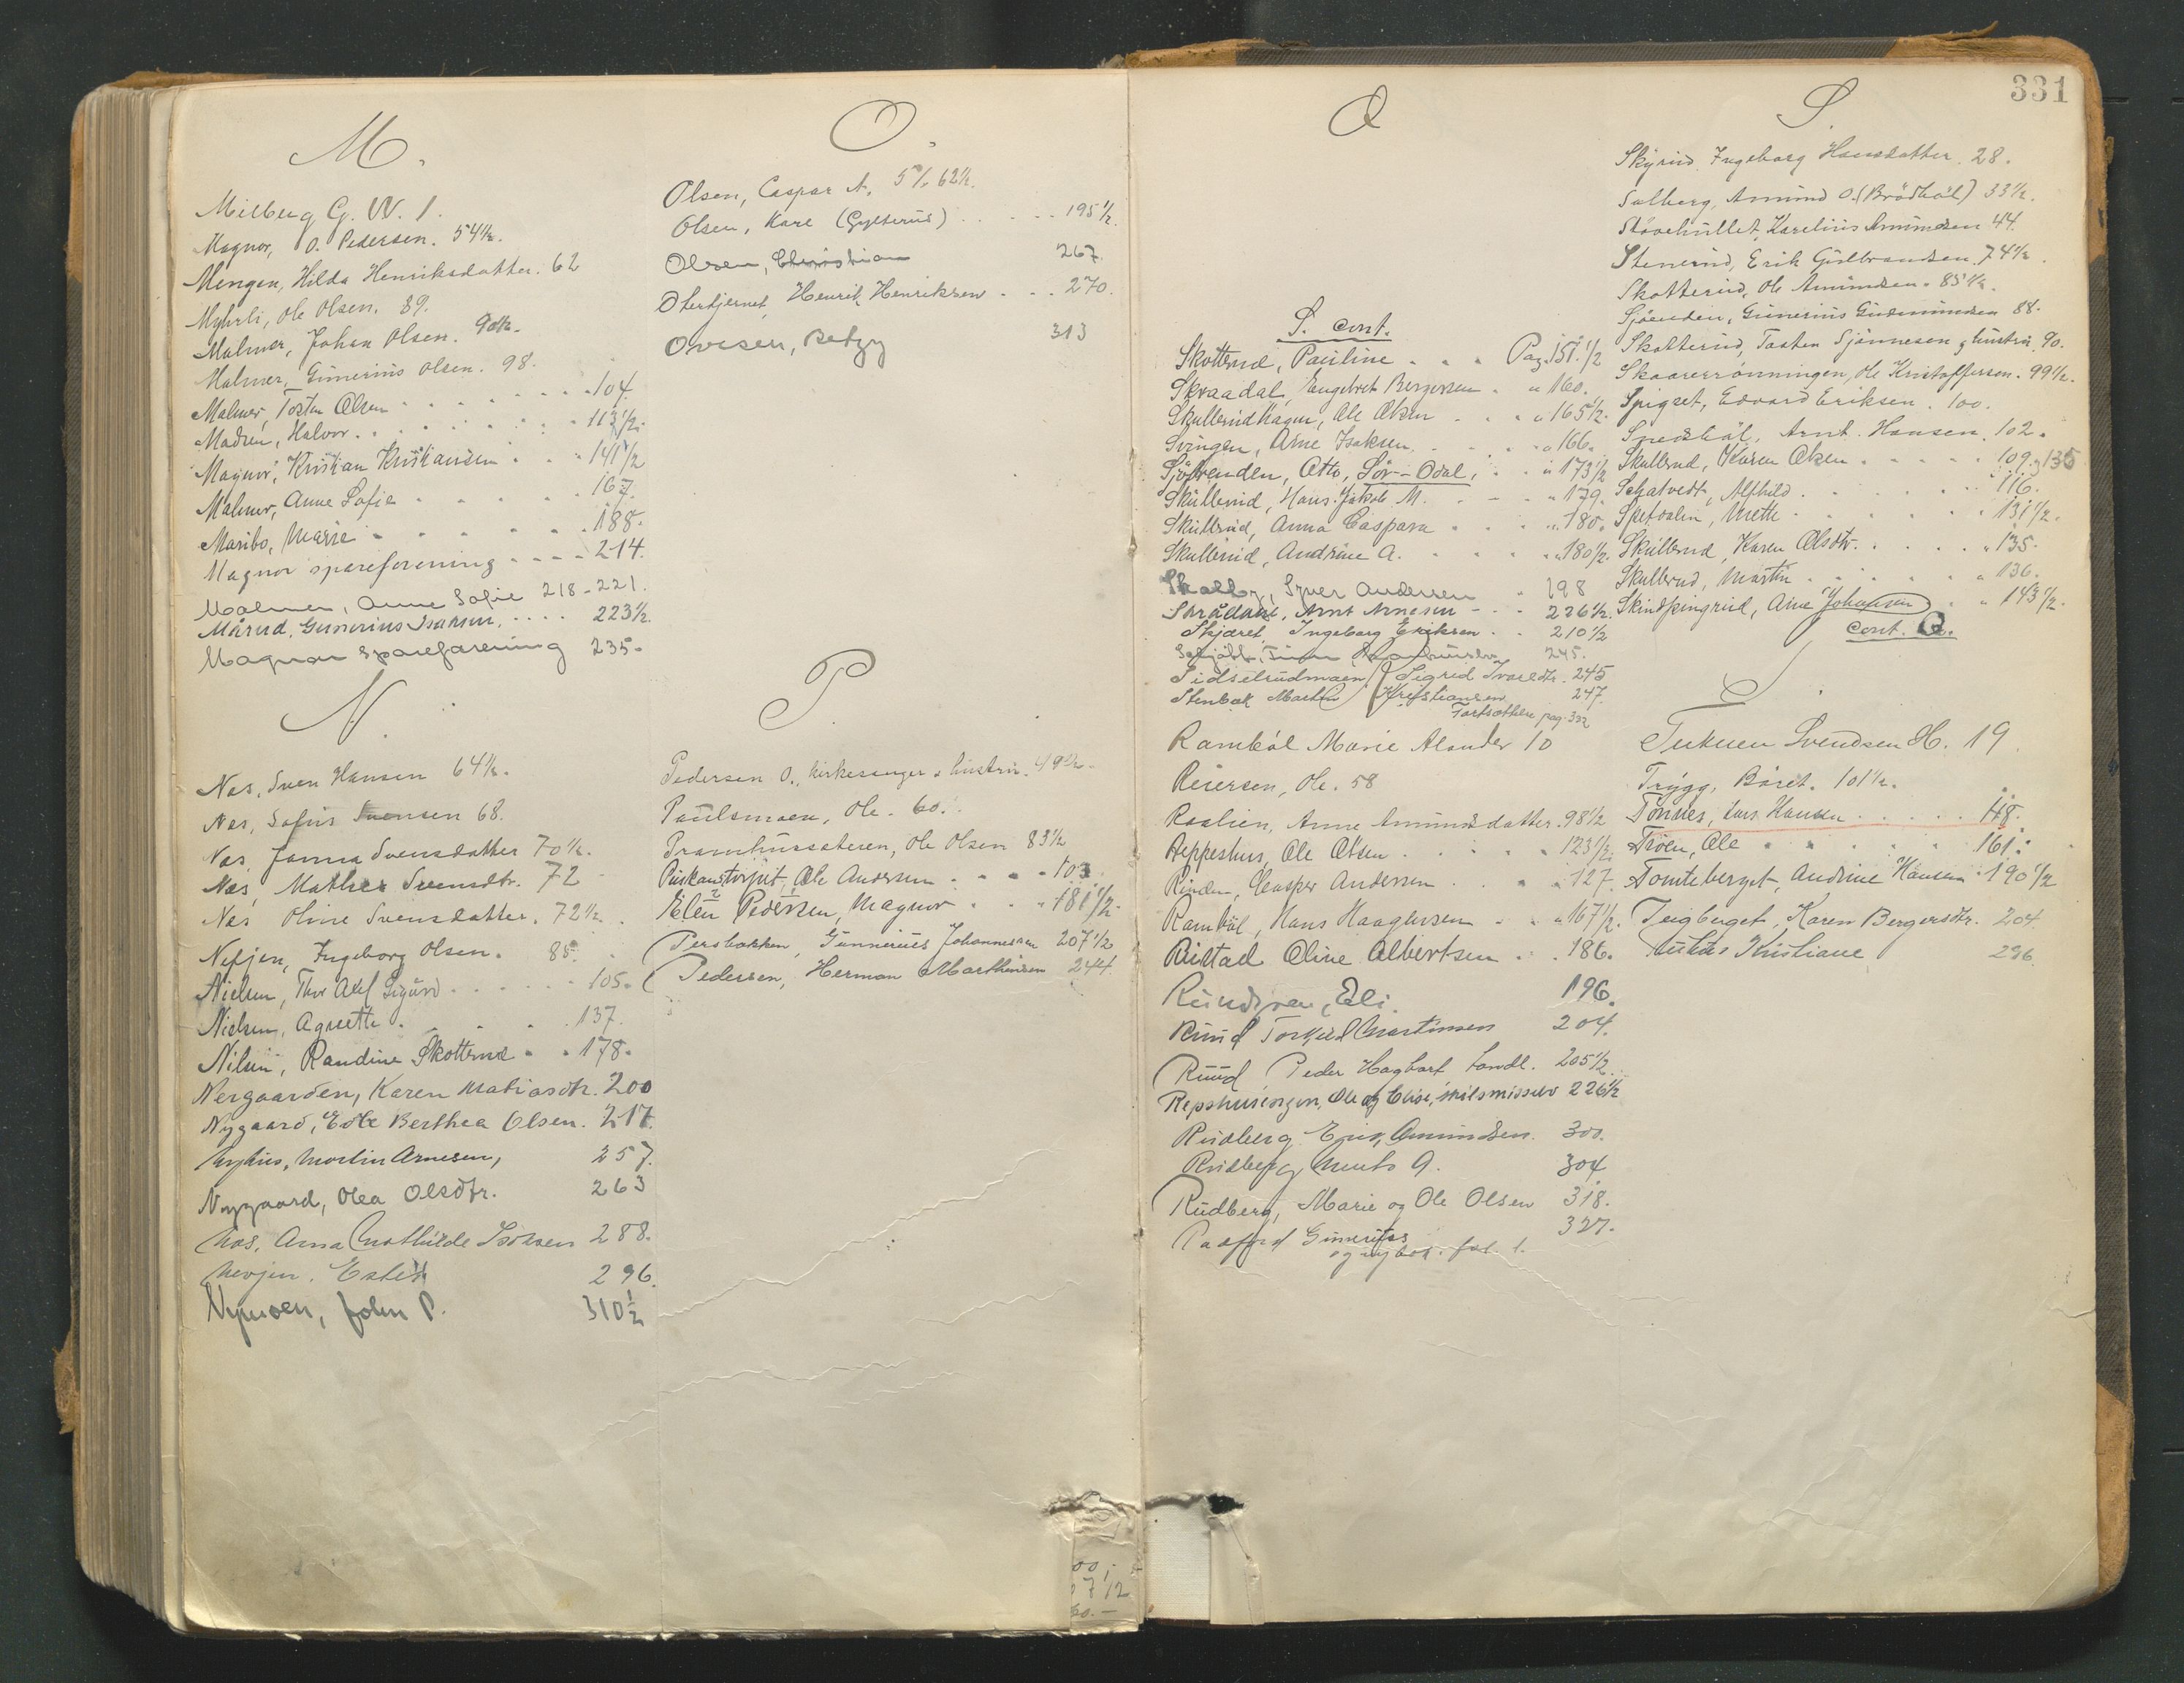 M.
Milberg G. W. 1.
Magnor, O. Pedersen. 54½.
Mengen, Hilda Henriksdatter. 62
Myhrli, Ole Olsen. 89.
Malmer, Johan Olsen. 90½.
Malmer, Gunerius Olsen. 98.
Malmer, Tosten Olsen 104.
Madsen, Halvor. 113½.
Magnor, Kristian Kristiansen 141½
Malmer, Anne Sofie 167.
Maribo, Marie 188.
Magnor spareforening 214.
Malmer, Anne Sofie 218-221.
Mårud, Gunerius Isaksen, 223½.
Magnor Spareforening 235.
N.
Nes, Sven Hansen 64½.
Nes, Sofus Svensen 68.
Nes, Janna Svensdatter 70½.
Nes, Mathea Svensdtr. 72
Nes Oline Svensdatter. 72½.
Nefjen, Ingeborg Olsen. 85.
Nielsen, Thor Axel Sigurd 105.
Nielsen, Agnette. 137.
Nilsen, Randine Skotterud 178.
Nergaarden, Karen Matiasdtr. 200
Nygaard, Edle Berthea Olsen. 217.
Nyhus, Martin Arnesen, 257.
Nyggaard, Olea Olsdtr. 263
Nes, Anna Mathilde Isaksen 288.
Nevjen, Ester 296.
Nymoen, John P. 310½
O.
Olsen, Caspar A. 5½ 62½.
Olsen, Kare (Gylterud) 195½.
Olsen, Christian 267.
Otertjernet, Henrik Henriksen 270.
Ovesen, Betzy 313
P.
Pedersen O., kirkesanger & hustru. 49½.
Paulsmoen, Ole. 60.
Pramhusseteren, Ole Olsen 83½
Puskastorpet, Ole Andersen 103
Elen Pedersen, Magnor 181½.
Persbakken, Gunnerius Johannessen 207½
Pedersen, Herman Marthinsen 244.
Q
S. cont.
Skotterud, Pauline Pag. 157.½
Skraadal, Engebret Bergersen " 160.
Skullerudhagen, Ole Olsen " 165½.
Svingen, Arne Isaksen " 166.
Sjøtrenden, Otto, Sör-Odal, " 173½
Skullerud, Hans Jakob M. " 179.
Skullerud, Anna Caspara " 180.
Skullerud, Andrine A. " 180½.
Skalby, Syver Andersen " 198
Skrådahl, Arnt Arnesen 226½.
Skjæret, Ingeborg Eriksen 210½
245.
Sidselrudmoen, Sigrid Ivarsdtr. 245
Stenbæk Martin Kristiansen 247.
Fortsættelse pag. 332
Rambøl Marie Alander 10
Reiersen, Ole. 58
Raslien, Anne Amundsdatter. 98½
Reppeshus, Ole Olsen 123½.
Rinden, Casper Andersen 127.
Rambøl, Hans Haagensen " 167½.
Ristad Oline Albertsen 186.
Rundgren, Eli. 196.
Ruud Torkild Martinsen 204.
Ruud Peder Hagbart Landl. 205½.
Repshuseiegen, Ole og Elise, skilsmisser 226½
Rudberg Amundsen. 300.
Rudberg 304.
Rudberg, Marie og Ole Olsen 318.
Gunerius 327.
og ny bok. fol. 1.
331
S.
Skyrud Ingeborg Hansdatter. 28.
Solberg, Amund O. (Brødbøl) 33½.
Støvehullet, Karelius Amundsen 44.
Stenerud, Erik Gulbrandsen. 74½.
Skotterud, Ole Amundsen. 85½.
Sjøenden, Gunerius Gudmundsen 88.
Skotterud, Tosten Sjønnesen & hustru. 90.
Skaarerrönningen, Ole Kristoffersen. 99½.
Spigset, Edvard Eriksen. 100.
Smedsbøl, Arnt Hansen. 102.
Skullerud, Karen Olsen 109 & 135
Schatvedt, Alfhild 116.
Spetalen, Mette 131½.
Skullerud, Karen Olsdtr. " 135.
Skullerud, Martin " 136.
Skindpingrud, Arne Johansen " 143½.
cont. Q.
T.
Terknen Svendsen H. 19.
Trygg, Båret. 101½.
Tønnes, Lars Hansen 148.
Troen, Ole 161.
Tomteberget, Andrine Hansen 190½
Teigberget, Karen Bergersdtr. 204.
Kristiane 296.
00,-
07 ½
60.-